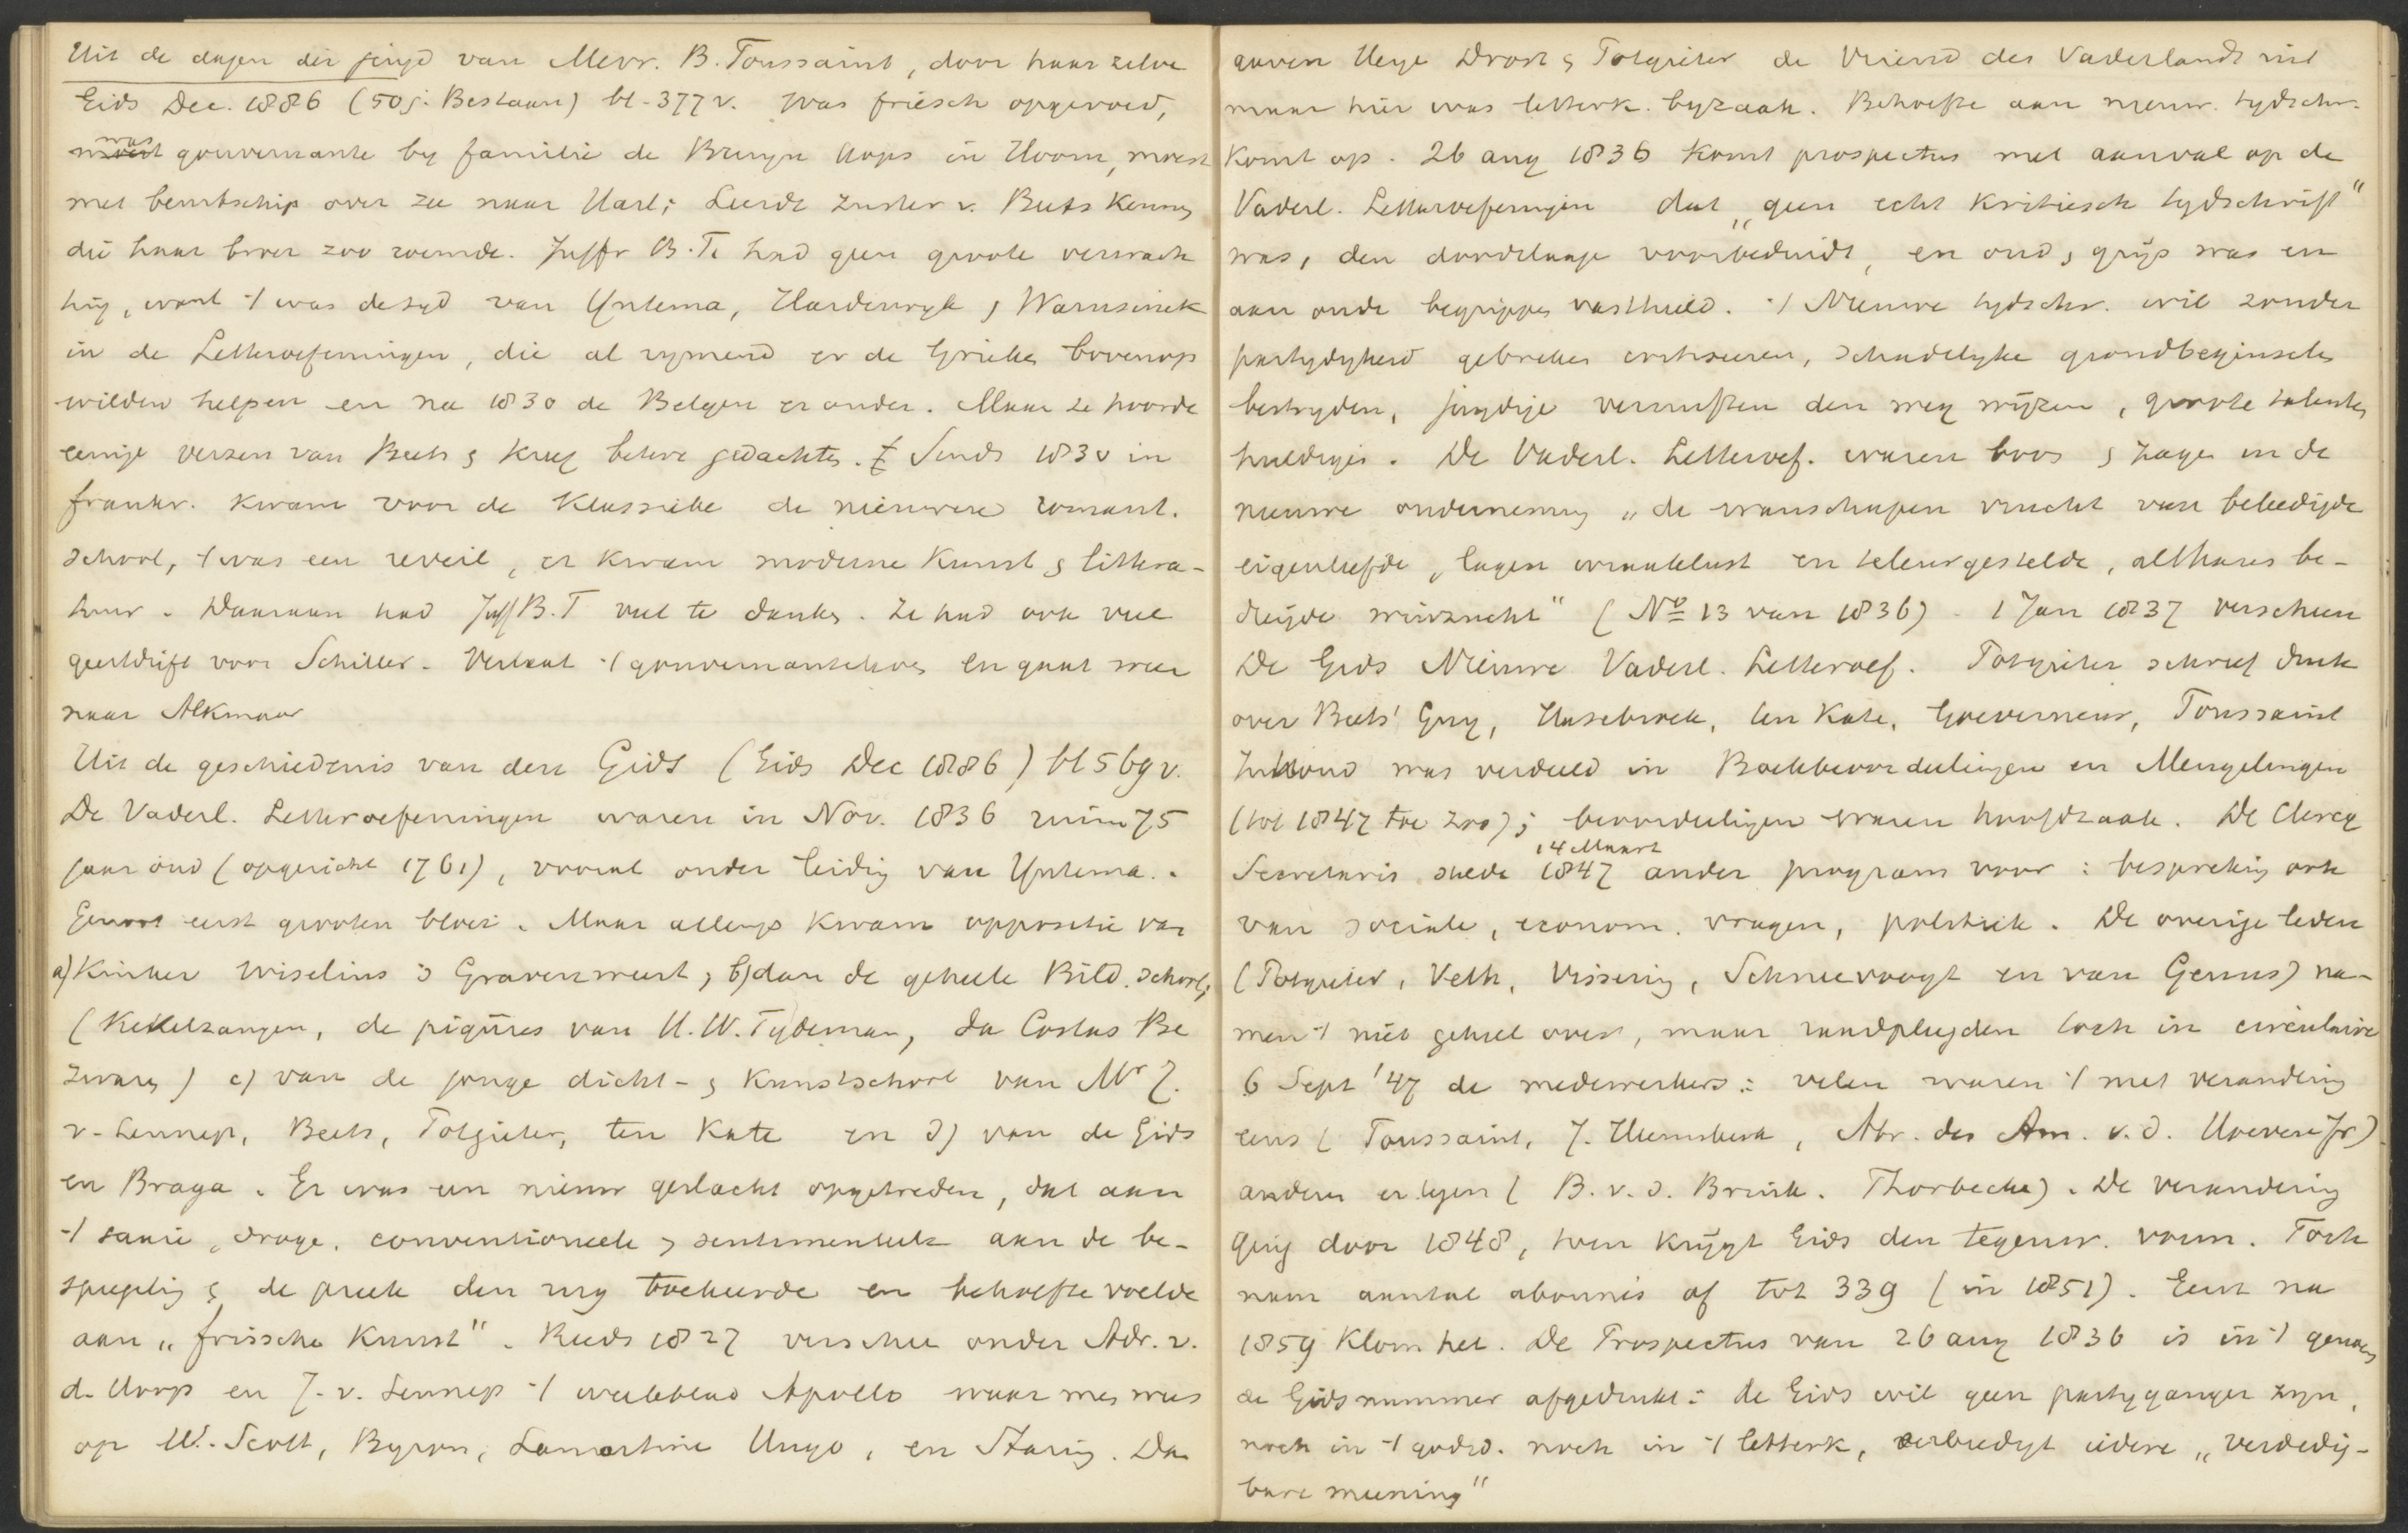 Uit de dagen der jeugd van Mevr. B. Toussaint, door haar zelve
Gids Dec. 1886 (50 j. Bestaan) bl. 377 v. Was friesch opgevoed,
was gouvernante by familie de Bruyn Kops in Hoorn, moest
met beurtschip over zee naar Harl; Leerde zuster v. Beets kennen
die haar broer zoo roemde. Juffr B. T. had geen groote verwach
ting, want 't was de tyd van Yntema, Harderwyk & Warnsinck
in de Letteroefeningen, die al rymend er de Grieken bovenop
wilden helpen en na 1830 de Belgen er onder. Maar ze hoorde
eenige verzen van Beets & kreeg betere gedachten. Sinds 1830 in
frankr. kwam voor de klassieke de nieuwere romant.
school, 't was een reveil, er kwam moderne kunst & littera-
tuur. Daaraan had Juff B. T veel te danken. Ze had ook veel
geestdrift voor Schiller. Verlaat 't gouvernanteleven en gaat weer
naar Alkmaar
Uit de geschiedenis van den Gids (Gids Dec 1886) bl 569 v.
De Vaderl. Letteroefeningen waren in Nov. 1836 ruim 75
jaar oud (opgericht 1761), vooral onder leiding van Yntema.
Genoot eerst grooten bloei. Maar allengs kwam oppositie van
a) Kinker Wiselius 's Gravenweert; b) dan de geheele Bild. school;
(Kekelzangen, de piqûres van H. W. Tydeman, da Costas Be
zwaren) c) van de jonge dicht- & kunstschool van Mr J.
v. Lennep, Beets, Potgieter, ten Kate en d) van de Gids
en Braga. Er was een nieuw geslacht opgetreden, dat aan
't saaie, droge, conventioneele & sentimenteele aan de be-
spiegeling & de preek den rug toekeerde en behoefte voelde
aan "frissche kunst". Reeds 1827 verscheen onder Adr. v.
d. Hoop en J. v. Lennep 't weekblad Apollo waar men wees
op W. Scott, Byron, Lamartine Hugo, en Staring. Dan
gaven Heye Drost & Potgieter de Vriend des Vaderlands uit
maar hier was letterk. byzaak. Behoefte aan nieuw. tydschr.
komt op. 26 aug 1836 komt prospectus met aanval op de
Vaderl. Letteroefeningen dat "geen echt kritiesch tydschrift"
was, den doodslaap voorbeduidt, en oud & grijs was en
aan oude begrippen vasthield. 't Nieuwe tydschr. wil zonder
partydigheid gebreken critiseren, schadelyke grondbeginselen
bestryden, jeugdige vernuften den weg wijzen, groote talenten
huldigen. De Vaderl. Letteroef. waren boos & zagen in de
nieuwe onderneming "de wanschapen vrucht van beleedigde
eigenliefde, lagen wraaklust en teleurgestelde, althans be-
dreigde winzucht" (No 13 van 1836). 1 Jan 1837 verscheen
De Gids Nieuwe Vaderl. Letteroef. Potgieter schreef druk
over Beets' Guy, Hasebroek, ten Kate, Goeverneur, Toussaint
Inhoud was verdeeld in Boekbeoordeelingen en Mengelingen
(tot 1847 toe zoo); beoordeelingen waren hoofdzaak. De Clercq
14 Maart
Secretaris stelde 1847 ander program voor: bespreking ook
van sociale, econom. vragen, politiek. De overige leden
(Potgieter, Veth, Vissering, Schneevoogt en van Geuns) na-
men 't niet geheel over, maar raadpleegden toch in circulaire
6 Sept '47 de medewerkers: velen waren 't met verandering
eens (Toussaint, J. Heemskerk, Abr. des Am. v. d. Hoeven Jr)
anderen er tegen (B. v. d. Brink. Thorbecke). De verandering
ging door 1848, toen krijgt Gids den tegenw. vorm. Toch
nam aantal abonnés af tot 339 (in 1851). Eerst na
1859 klom het. De Prospectus van 26 aug 1836 is in 't genoem
de Gidsnummer afgedrukt: de Gids wil geen partyganger zyn,
noch in 't godsd. noch in 't letterk, eerbiedigt iedere "verdedig-
bare meening"